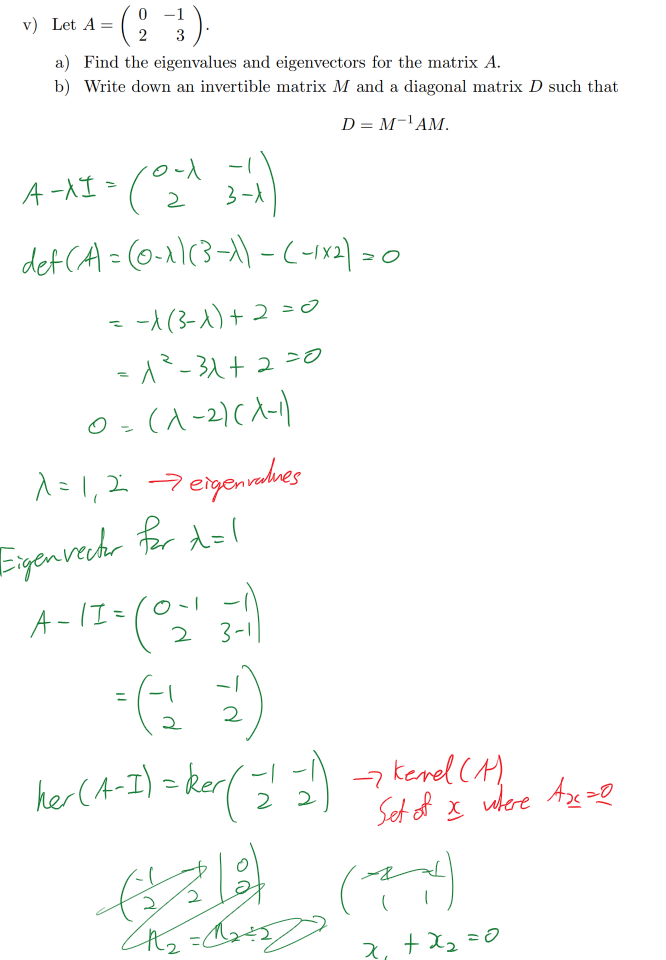 v) Let A = ( 0 −1
2 3 ).
a) Find the eigenvalues and eigenvectors for the matrix A.
b) Write down an invertible matrix M and a diagonal matrix D such that
D = M⁻¹AM.
A - λI = ( 0-λ -1
2 3-λ )
det(A) = (0-λ)(3-λ) - (-1×2) = 0
= -λ(3-λ) + 2 = 0
= λ² - 3λ + 2 = 0
0 = (λ-2)(λ-1)
λ = 1, 2 → eigenvalues
Eigenvector for λ=1
A - 1I = ( 0-1 -1
2 3-1 )
= ( -1 -1
2 2 )
ker(A-I) = ker( -1 -1
2 2 ) → kernel(A)
Set of x where Ax=0
( -1 -1 | 0
2 2 | 0 )
1 1
x₁ + x₂ = 0